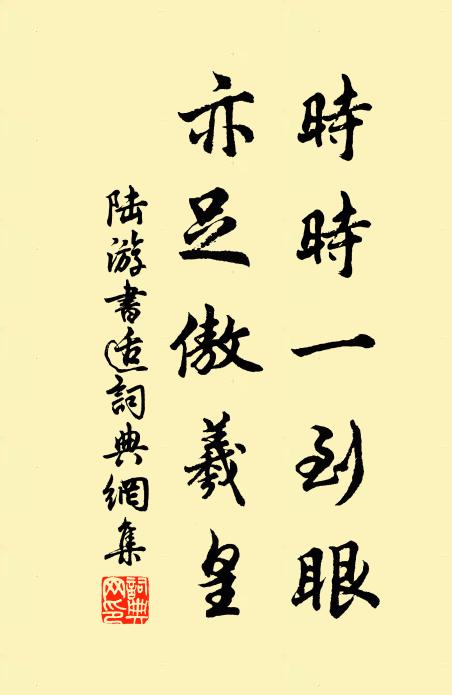 時時一到眼
亦足傲羲皇
陸游書适詞典網集
詞典網印